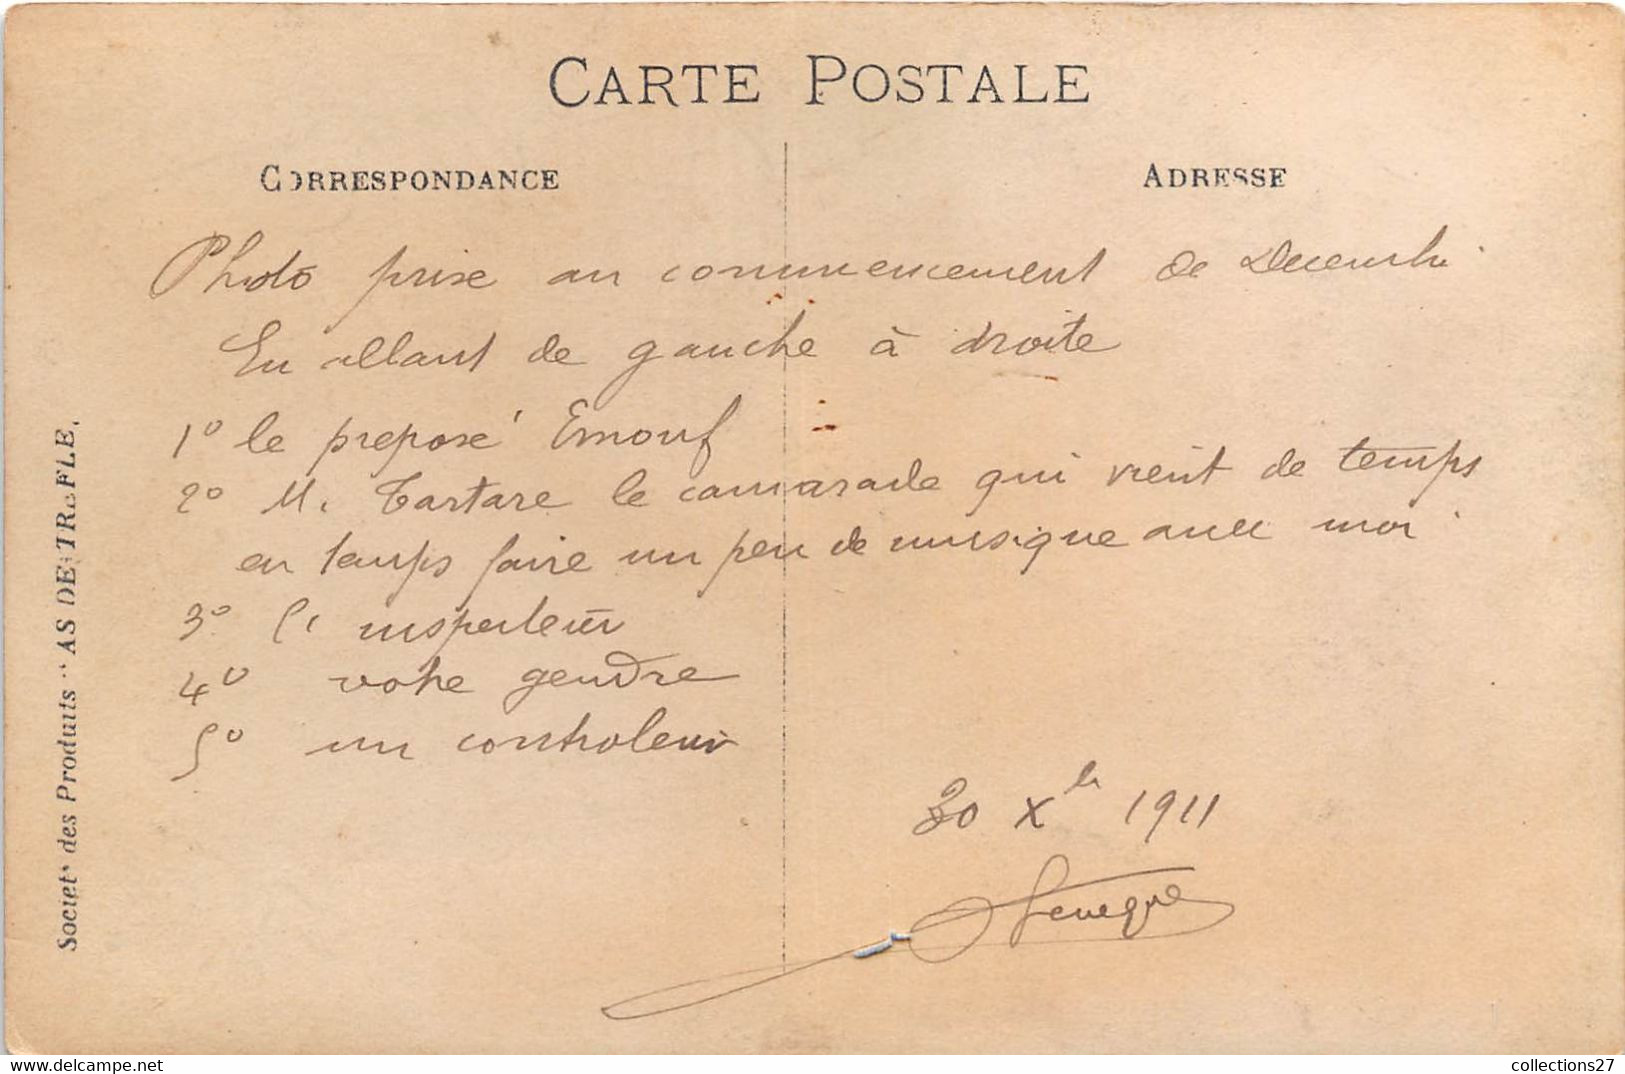 CARTE POSTALE
CORRESPONDANCE
ADRESSE
Photo prise au commencement de Decembre
En allant de gauche à droite
1° le preposé Ernouf
2° M. Tartare le camarade qui vient de temps
en temps faire un peu de musique avec moi
3° l' inspecteur
4° votre gendre
5° un controleur
30 Xbre 1911
Societé des Produits "AS DE TREFLE"
collections27